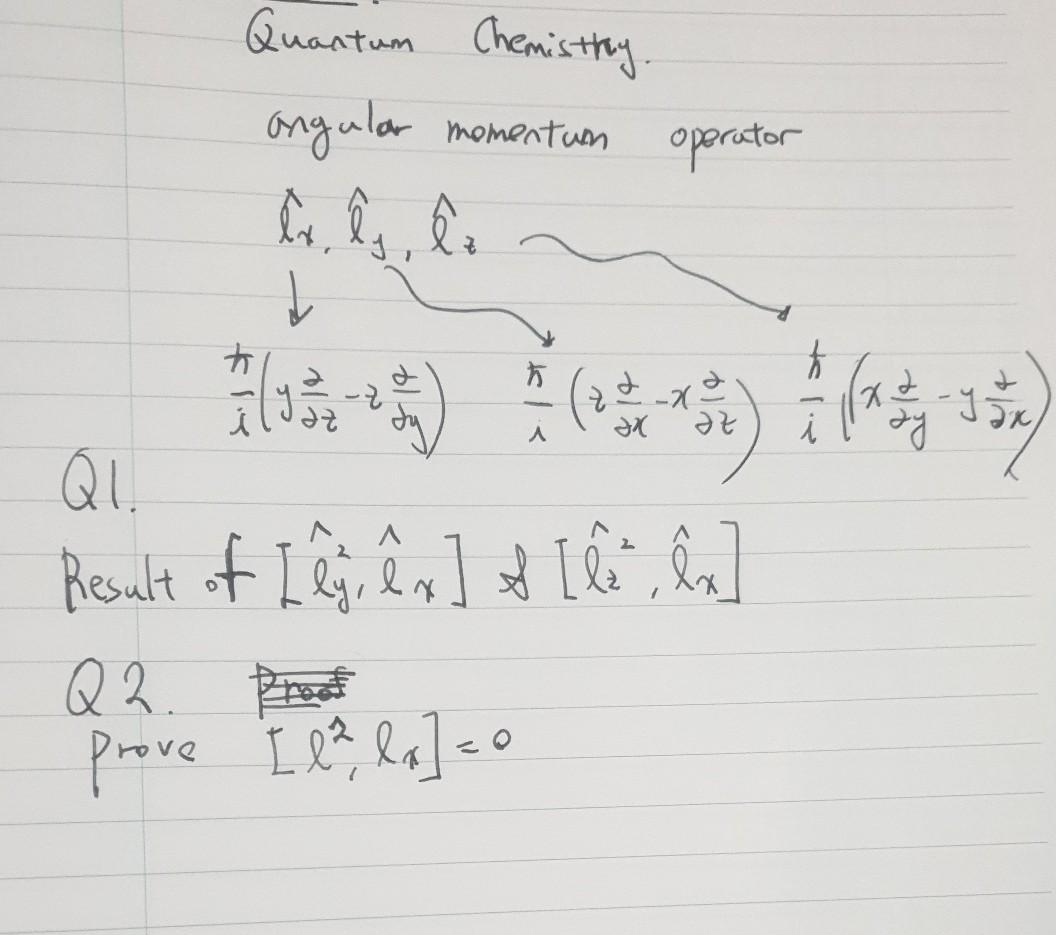 Quantum Chemisttry.
angular momentum operator
l̂x, l̂y, l̂z
ħ/i (y ∂/∂z - z ∂/∂y) ħ/i (z ∂/∂x - x ∂/∂z) ħ/i (x ∂/∂y - y ∂/∂x)
Q1.
Result of [l̂y², l̂x] & [l̂z², l̂x]
Q2. Proof
prove [l², lx] = 0